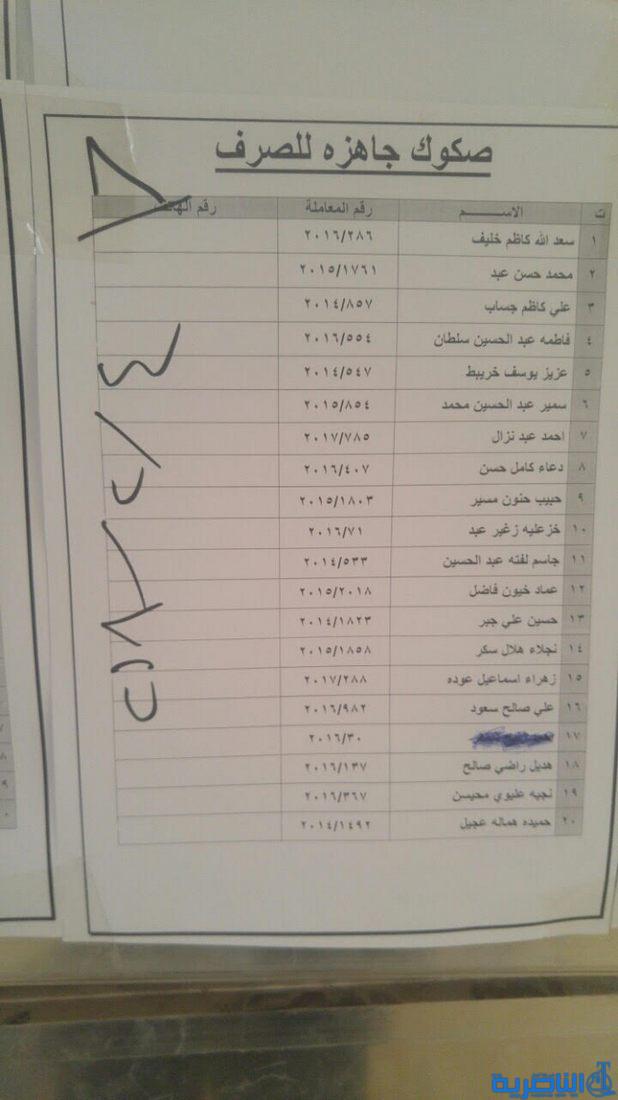 صكوك جاهزه للصرف
ت الاســـــم رقم المعاملة رقم
١ سعد الله كاظم خليف ٢٠١٦/٢٨٦
٢ محمد حسن عبد ٢٠١٥/١٧٦١
٣ علي كاظم جساب ٢٠١٤/٨٥٧
٤ فاطمه عبد الحسين سلطان ٢٠١٦/٥٥٤
٥ عزيز يوسف خريبط ٢٠١٤/٥٤٧
٦ سمير عبد الحسين محمد ٢٠١٥/٨٥٤
٧ احمد عبد نزال ٢٠١٧/٧٨٥
٨ دعاء كامل حسن ٢٠١٦/٤٠٧
٩ حبيب حنون مسير ٢٠١٥/١٨٠٣
١٠ خزعليه زغير عبد ٢٠١٦/٧١
١١ جاسم لفته عبد الحسين ٢٠١٤/٥٣٣
١٢ عماد خيون فاضل ٢٠١٥/٢٠١٨
١٣ حسين علي جبر ٢٠١٤/١٨٢٣
١٤ نجلاء هلال سكر ٢٠١٥/١٨٥٨
١٥ زهراء اسماعيل عوده ٢٠١٧/٢٨٨
١٦ علي صالح سعود ٢٠١٦/٩٨٢
١٧ ٢٠١٦/٣٠
١٨ هديل راضي صالح ٢٠١٦/١٣٧
١٩ نجيه عليوي محيسن ٢٠١٦/٣٦٧
٢٠ حميده هماله عجيل ٢٠١٤/١٤٩٢
الناصرية